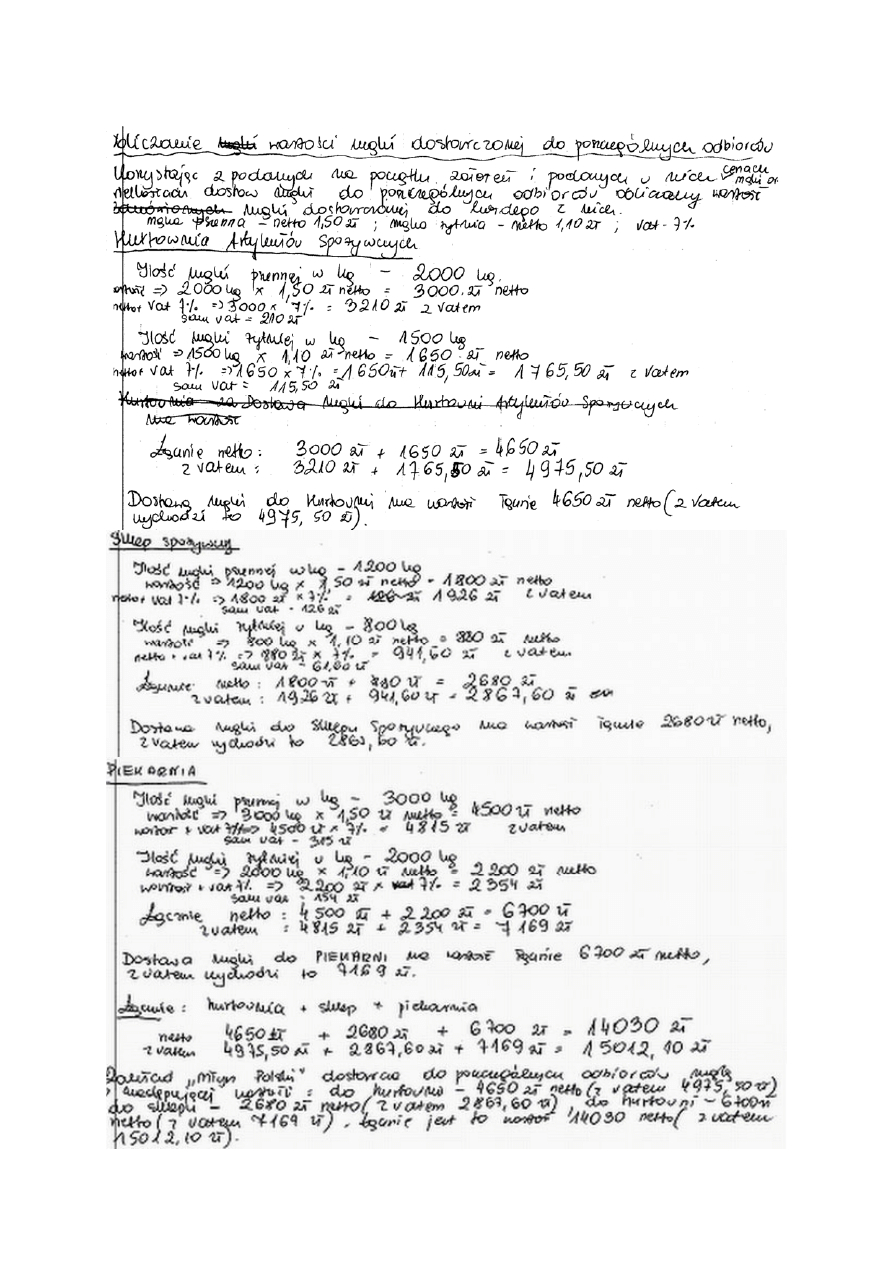 Obliczanie mąki wartości mąki dostarczonej do poszczególnych odbiorców
Korzystając z podanych na początku założeń i podanych w nich cenach mąki or
ilościach dostaw mąki do poszczególnych odbiorców obliczamy wartość
zamówionych mąki dostarczonej do każdego z nich.
mąka pszenna – netto 1,50 zł ; mąka żytnia – netto 1,10 zł ; vat - 7%
Hurtownia Artykułów Spożywczych
Ilość mąki pszennej w kg – 2000 kg.
wartość => 2000 kg × 1,50 zł netto = 3000 zł netto
netto+ vat 7% => 3000 × 7% = 3210 zł z vatem
sam vat = 210 zł
Ilość mąki żytniej w kg – 1500 kg
wartość => 1500 kg × 1,10 zł netto = 1650 zł netto
netto+ vat 7% => 1650 × 7% = 1650zł+ 115,50zł = 1765,50 zł z vatem
sam vat = 115,50 zł
Hurtownia za Dostawa mąki do Hurtowni Artykułów Spożywczych
ma wartość
Łącznie netto: 3000 zł + 1650 zł = 4650 zł
z vatem : 3210 zł + 1765,50 zł = 4975,50 zł
Dostawa mąki do Hurtowni ma wartość łącznie 4650 zł netto (z vatem
wychodzi to 4975,50 zł).
Sklep spożywczy
Ilość mąki pszennej w kg – 1200 kg
wartość => 1200 kg × 1,50 zł netto = 1800 zł netto
netto+ vat 7% => 1800 zł × 7% = 126 zł 1926 zł z vatem
sam vat - 126 zł
Ilość mąki żytniej w kg – 800 kg
wartość => 800 kg × 1,10 zł netto = 880 zł netto
netto + vat 7% => 880 zł × 7% = 941,60 zł z vatem
sam vat - 61,60 zł
Łącznie netto : 1800 zł + 880 zł = 2680 zł
z vatem : 1926 zł + 941,60 zł = 2867,60 zł
Dostawa mąki do Sklepu Spożywczego ma wartość łącznie 2680 zł netto,
z vatem wychodzi to 2867,60 zł.
PIEKARNIA
Ilość mąki pszennej w kg – 3000 kg
wartość => 3000 kg × 1,50 zł netto = 4500 zł netto
wartość + vat 7% => 4500 zł × 7% = 4815 zł z vatem
sam vat - 315 zł
Ilość mąki żytniej w kg – 2000 kg
wartość => 2000 kg × 1,10 zł netto = 2200 zł netto
wartość + vat 7% => 2200 zł × vat 7% = 2354 zł
sam vat : 154 zł
Łącznie netto : 4500 zł + 2200 zł = 6700 zł
z vatem : 4815 zł + 2354 zł = 7169 zł
Dostawa mąki do PIEKARNI ma wartość łącznie 6700 zł netto,
z vatem wychodzi to 7169 zł.
Łącznie : hurtownia + sklep + piekarnia
netto 4650 zł + 2680 zł + 6700 zł = 14030 zł
z vatem 4975,50 zł + 2867,60 zł + 7169 zł = 15012,10 zł
Zakład „Młyn Polski" dostarcza do poszczególnych odbiorców mąkę
o następującej wartości : do hurtowni – 4650 zł netto (z vatem 4975,50 zł)
do sklepu – 2680 zł netto (z vatem 2867,60 zł), do hurtowni – 6700 zł
netto (z vatem 7169 zł). Łącznie jest to wartość 14030 netto (z vatem
15012,10 zł).